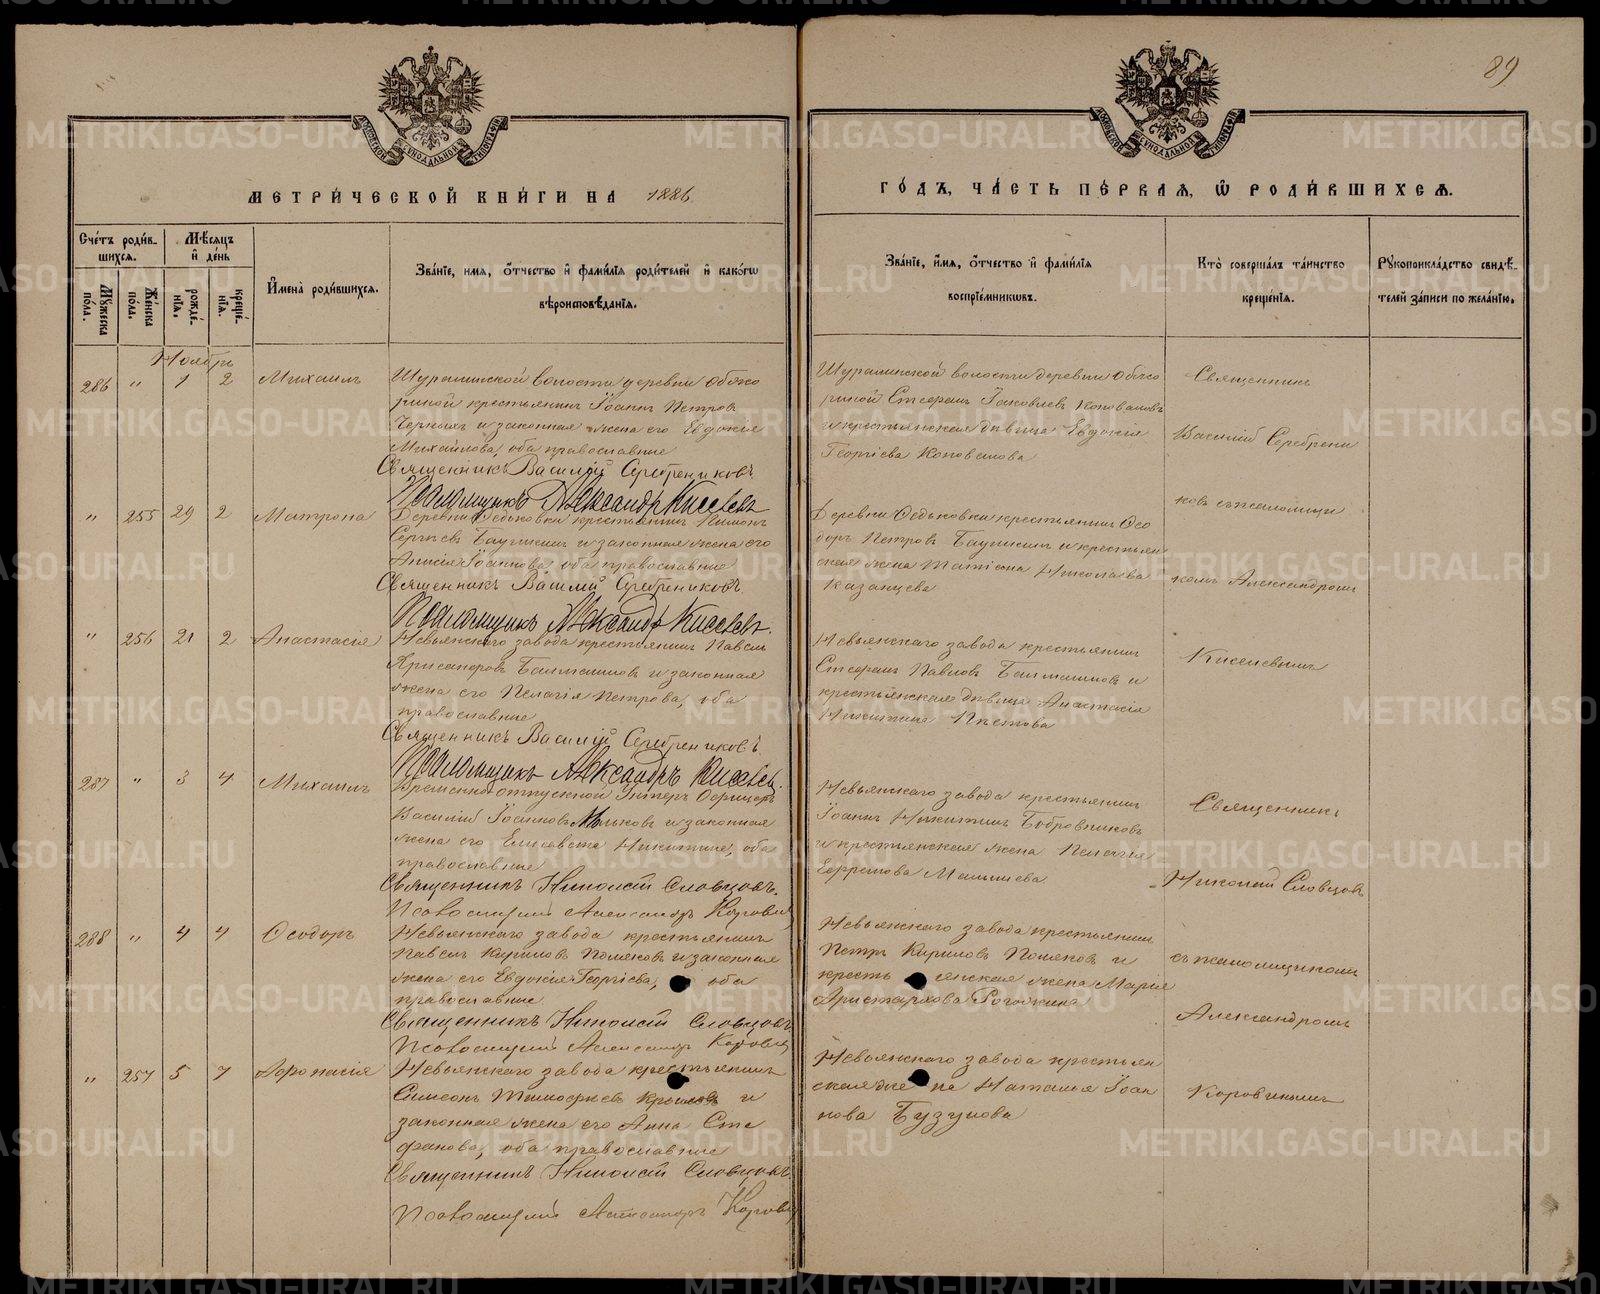 89
МЕТРИ́ЧЕСКОЙ КНИ́ГИ НА 1886
ГО́ДЪ, ЧА́СТЬ ПЕ́РВАЯ, Ѡ РОДИ́ВШИХСЯ.
Сче́тъ роди́в-
шихся.
Мѣ́сяцъ
и҆ де́нь
Мꙋ́жеска
по́ла.
Же́нска
по́ла.
рожде́-
нїя.
креще́-
нїя.
И҆мена̀ роди́вшихся.
Зва́нїе, и҆мя, ѻ҆́тчество и҆ фами́лїя роди́телей и҆ како́гѡ
вѣроисповѣ́данїя.
Зва́нїе, и҆́мя, ѻ҆́тчество и҆ фами́лїя
воспрїе́мникѡвъ.
Кто̀ соверша́лъ та́инство
креще́нїя.
Рꙋкоприкла́дство свидѣ́-
телей за́писи по жела́нїю.
Ноябрь
286 " 1 2 Михаилъ
Шуралинской волости деревни Обжо
риной крестьянинъ Іоаннъ Петровъ
Черныхъ и законная жена его Евдокія
Михайлова, оба православные
Священникъ Василій Серебрениковъ
Псаломщикъ Александръ Киселевъ
Шуралинской волости деревни Обжо
риной Стефанъ Іаковлевъ Коноваловъ
и крестьянская дѣвица Евдокія
Георгіева Коновалова
Священникъ
Василій Серебрени
ковъ съ псаломщи
комъ Александромъ
Киселевымъ
" 255 29 2 Матрона
Деревни Ѳедьковки крестьянинъ
Сергѣевъ и законная жена его
Анисія Іоаннова, оба православные
Священникъ Василій Серебрениковъ
Псаломщикъ Александръ Киселевъ
Деревни Ѳедьковки крестьянинъ Ѳео
доръ Петровъ и крестьян
ская жена Татіана Николаева
Казанцева
" 256 21 2 Анастасія
Невьянскаго завода крестьянинъ Павелъ
и законная
жена его Пелагія Петрова, оба
православные
Священникъ Василій Серебрениковъ
Псаломщикъ Александръ Киселевъ
Невьянскаго завода крестьянинъ
Стефанъ Павловъ и
крестьянская дѣвица Анастасія
Никитина
287 " 3 4 Михаилъ
Временно отпускной Унтеръ Офицеръ
Василій Іоанновъ и законная
жена его Елисавета Никитина, оба
православные
Священникъ Николай Словцовъ.
Псаломщикъ Александръ Коровин
Невьянскаго завода крестьянинъ
Іоаннъ Никитинъ Бобровниковъ
и крестьянская жена Пелагія
Ефремова
Священникъ
Николай Словцовъ
съ псаломщикомъ
Александромъ
Коровинымъ
288 " 4 4 Ѳеодоръ
Невьянскаго завода крестьянинъ
Павелъ Кириловъ Поляковъ и законная
жена его Евдокія Георгіева, оба
православные
Священникъ Николай Словцовъ
Псаломщикъ Александръ Коровин
Невьянскаго завода крестьянинъ
Петръ Кириловъ Поляковъ и
кресть янская жена Марія
Аристархова Рогожина
" 257 5 7 Афонасія
Невьянскаго завода крестьянинъ
Симеонъ Тимофѣевъ и
законная жена его Анна Сте
фанова, оба православные
Священникъ Николай Словцовъ
Псаломщикъ Александръ Коровин
Невьянскаго завода крестьян
ская Наталья Іоан
нова Бузунова
METRIKI.GASO-URAL.RU